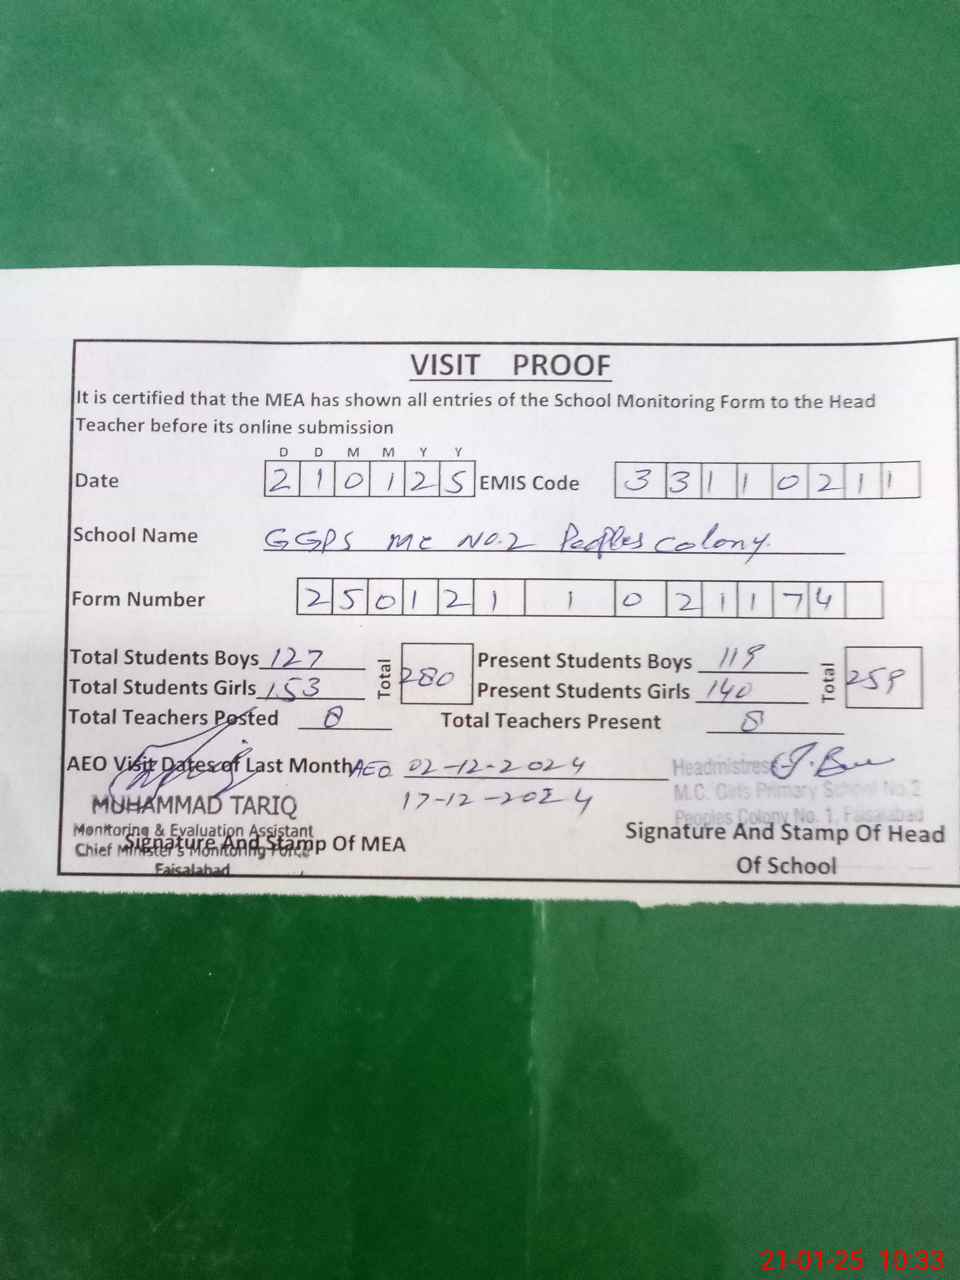 VISIT PROOF
It is certified that the MEA has shown all entries of the School Monitoring Form to the Head
Teacher before its online submission
D D M M Y Y
Date 2 1 0 1 2 5 EMIS Code 3 3 1 1 0 2 1 1
School Name GGPS MC No.2 Peoples Colony.
Form Number 2 5 0 1 2 1 1 0 2 1 1 7 4
Total Students Boys 127 Total 280 Present Students Boys 119 Total 259
Total Students Girls 153 Present Students Girls 140
Total Teachers Posted 8 Total Teachers Present 8
AEO Visit Dates of Last Month AEO 02-12-2024
17-12-2024
Headmistress
M.C. Girls Primary School No.2
Peoples Colony No. 1, Faisalabad
MUHAMMAD TARIQ
Monitoring & Evaluation Assistant
Chief Minister's Monitoring Force
Faisalabad
Signature And Stamp Of MEA
Signature And Stamp Of Head
Of School
21-01-25 10:33